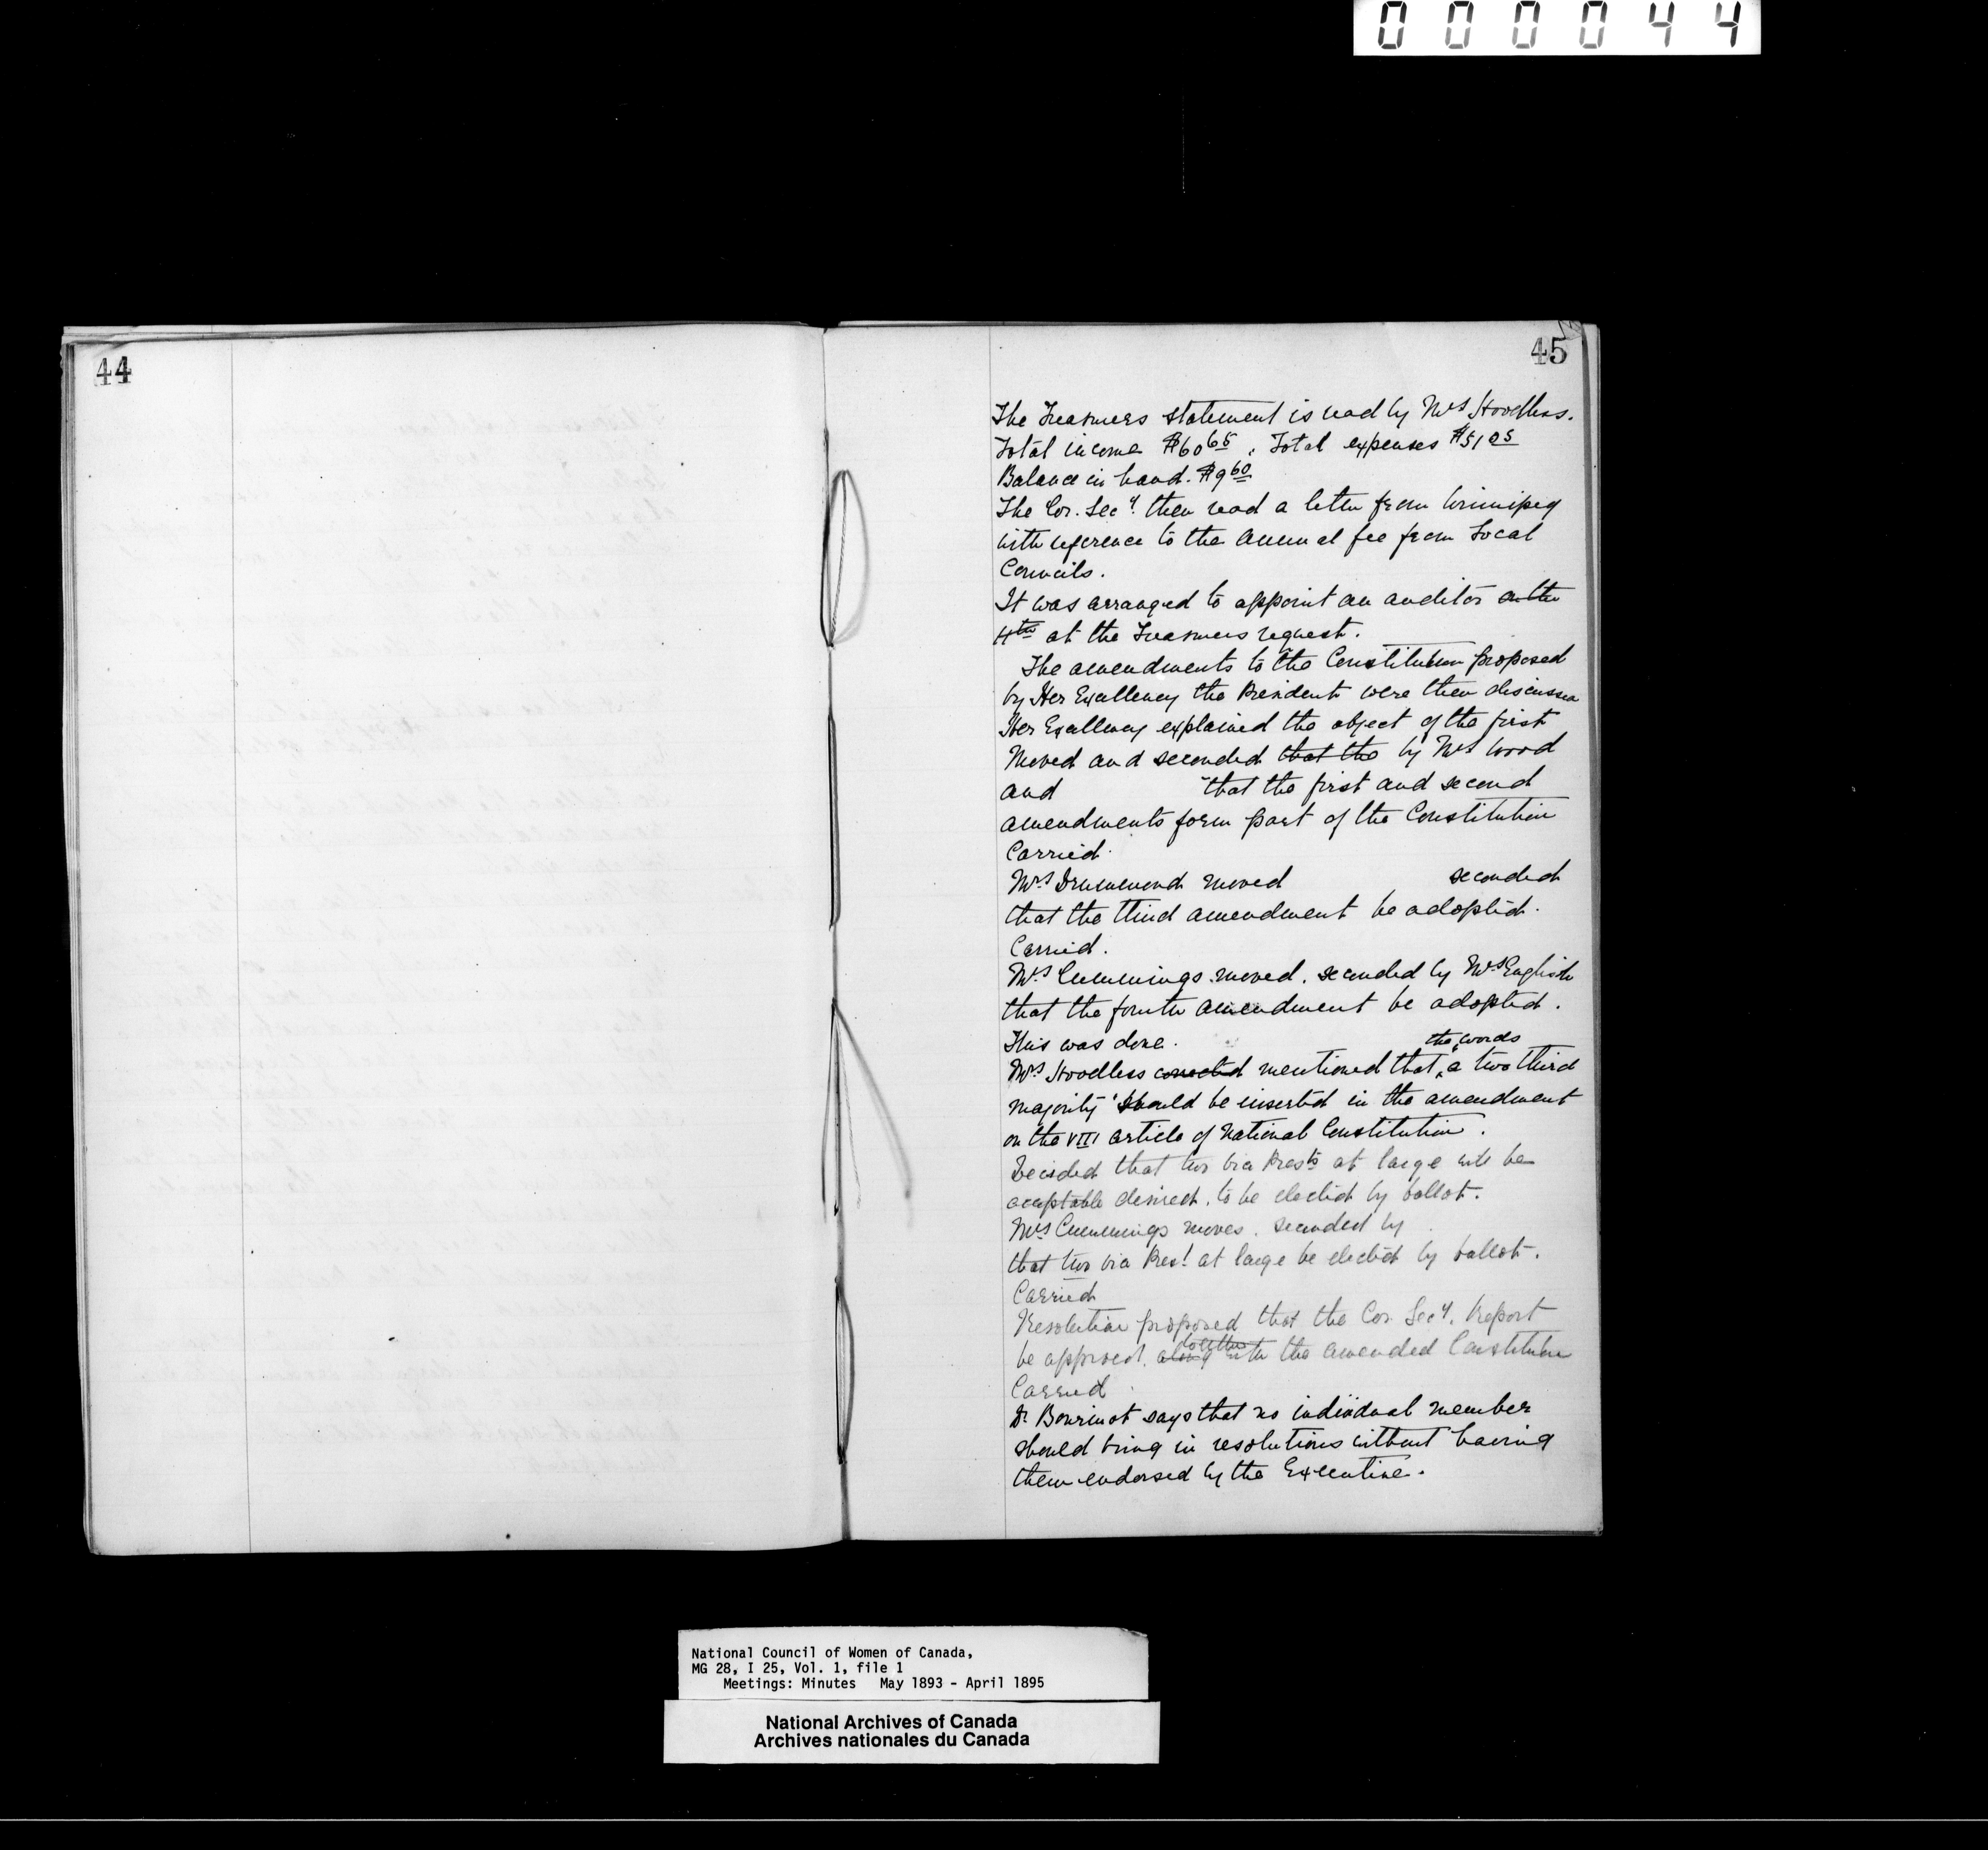 000044
44
45
The Treasurers statement is read by Mrs Hoodless.
Total income $60 65. Total expenses $51 05
Balance in hand. $9 60
The Cor. Secy. then read a letter from Winnipeg
with reference to the annual fee from Local
Councils.
It was arranged to appoint an auditor on the
4th at the Treasurers request.
The amendments to the Constitution proposed
by Her Excellency the President were then discussed
Her Excellency explained the object of the first
Moved and seconded that the by Mrs Wood
and that the first and second
amendments form part of the Constitution
Carried.
Mrs Drummond moved seconded
that the third amendment be adopted.
Carried.
Mrs Cummings moved. seconded by Mrs English
that the fourth amendment be adopted.
This was done.
the words
Mrs Hoodless corrected mentioned that a two third
majority' should be inserted in the amendment
on the VIII article of National Constitution.
Decided that two Vice Prests at large will be
acceptable desired. to be elected by ballot.
Mrs Cummings moves. seconded by
that two vice Pres! at large be elected by ballot.
Carried
Resolution proposed that the Cor. Secy. Report
together
be approved. along with the amended Constitution
Carried
Dr Bourinot says that no individual member
should bring in resolutions without having
them endorsed by the Executive.
National Council of Women of Canada,
MG 28, I 25, Vol. 1, file 1
Meetings: Minutes May 1893 - April 1895
National Archives of Canada
Archives nationales du Canada